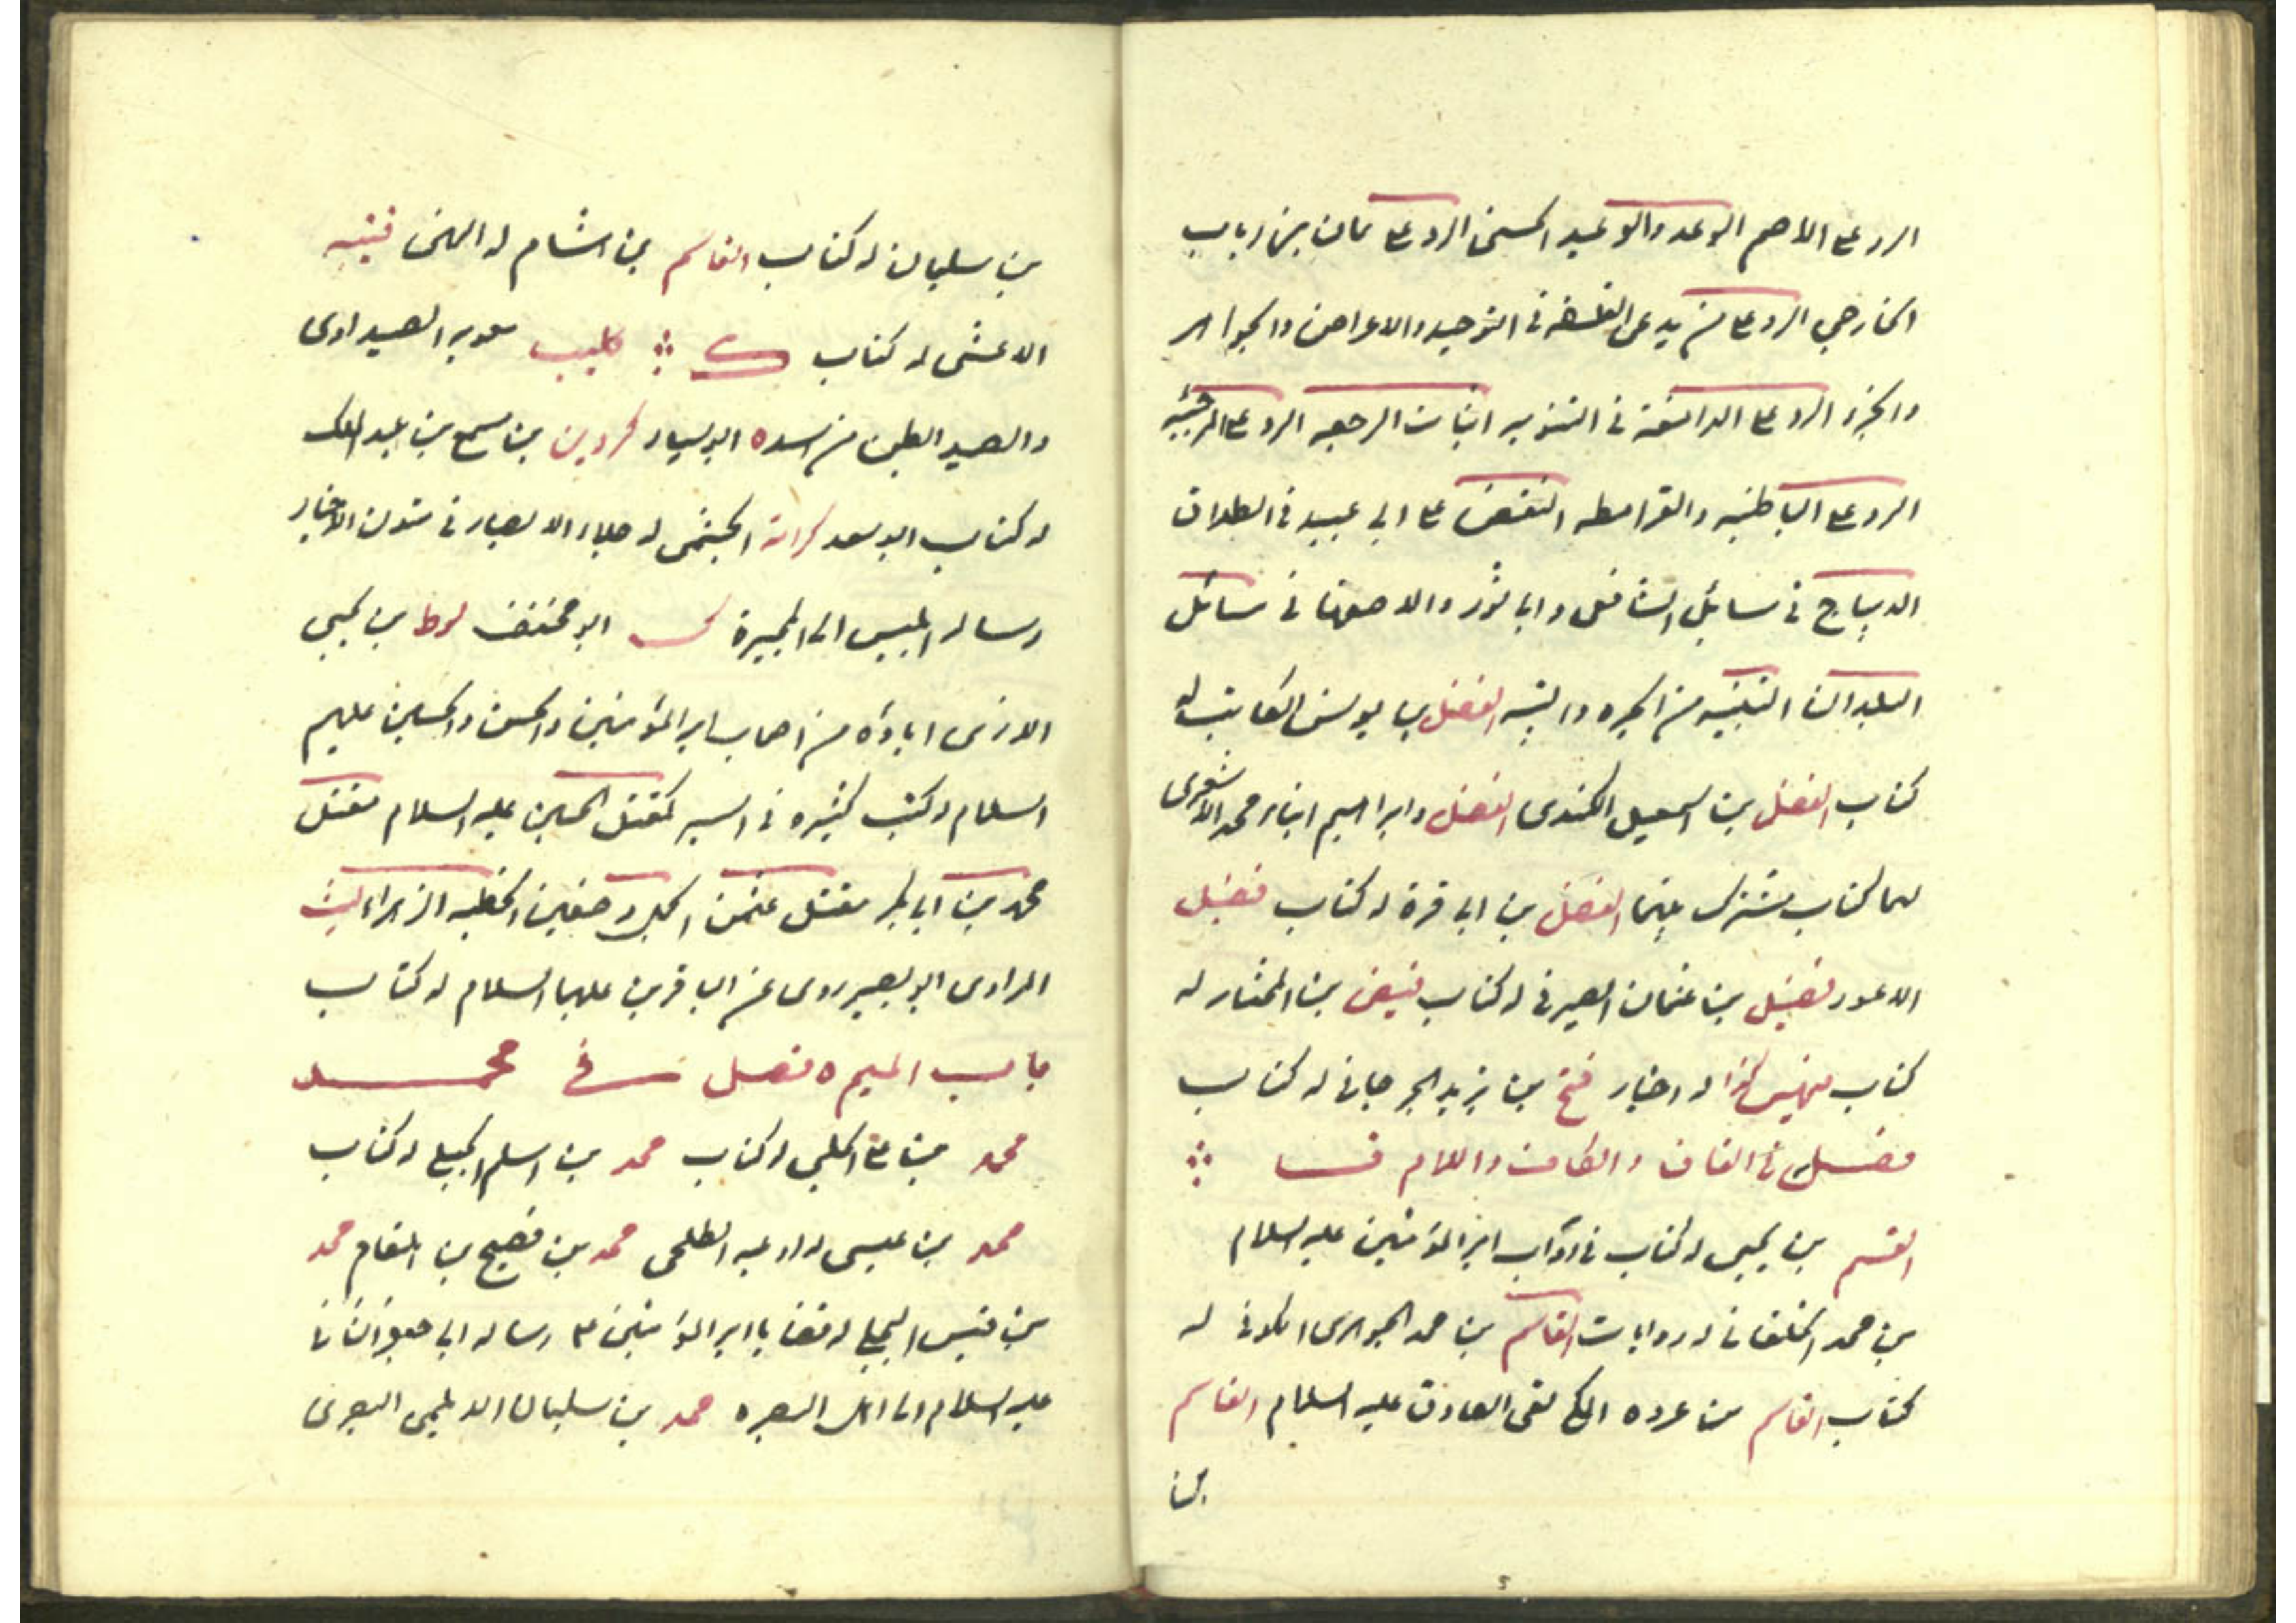 الرد على الاصم الوعد والوعيد الحسنى الرد على يمان بن رباب
الخارجي الرد على من يدعى الفلسفة في التوحيد والاعراض والجواهر
والجزء الرد على الدامغة في الثنويه اثبات الرجعه الرد على المرجئيه
الرد على الباطنيه والقرامطه النقض على ابي عبيد في الطلاق
الديباج في مسايل الشافعى وابي ثور والاصفهانى مسائل
البلدان التنبيه من الجبره والتشبيه الفضل بن يونس الكاتب له
كتاب الفضل بن اسمعيل الكندى الفضل وابراهيم ابناء محمد الاشعرى
لهما كتاب مشترك بينهما الفضل بن ابي قرة له كتاب فضيل
الاعور فضيل بن عثمان الصيرفى له كتاب فيض بن المختار له
كتاب كذا له اخبار فتح بن يزيد الجرجانى له كتاب
فصل في القاف والكاف واللام ق
القسم بن يحيى له كتاب في اداب امير المؤمنين عليه السلام
بن محمد الخلقانى له روايات القاسم بن محمد الجوهرى الكوفى له
كتاب القاسم بن عروه لقى الصادق عليه السلام القاسم
بن
بن سليمان له كتاب القاسم بن هشام له قتيبه
الاعشى له كتاب ك كليب بن معويه الصيداوى
والصيد بطن من اسد ابو سيار كردين بن مسمع بن عبد الملك
له كتاب ابو سعد كرامة الجشمى له جلاء الابصار في متون الاخبار
رساله ابليس الى المجبرة ل ابو مخنف لوط بن يحيى
الازدى اباه من اصحاب امير المؤمنين والحسن والحسين عليهم
السلام له كتب كثيره في السير كمقتل الحسين عليه السلام مقتل
محمد بن ابي بكر مقتل عثمن الجمل وصفين الخطبه الزهراء ليث
المرادى ابو بصير روى عن الباقرين عليهما السلام له كتاب
باب الميم فصل في محمد
محمد بن على الحلبى له كتاب محمد بن اسلم الجبلي له كتاب
محمد بن عيسى له ادعيه الطلحى محمد بن فصيح بن محمد
بن قيس البجلي له قضايا امير المؤمنين ع رساله ابي جعفر الثانى
عليه السلام الى اهل البصره محمد بن سليمان الديلمى البصرى